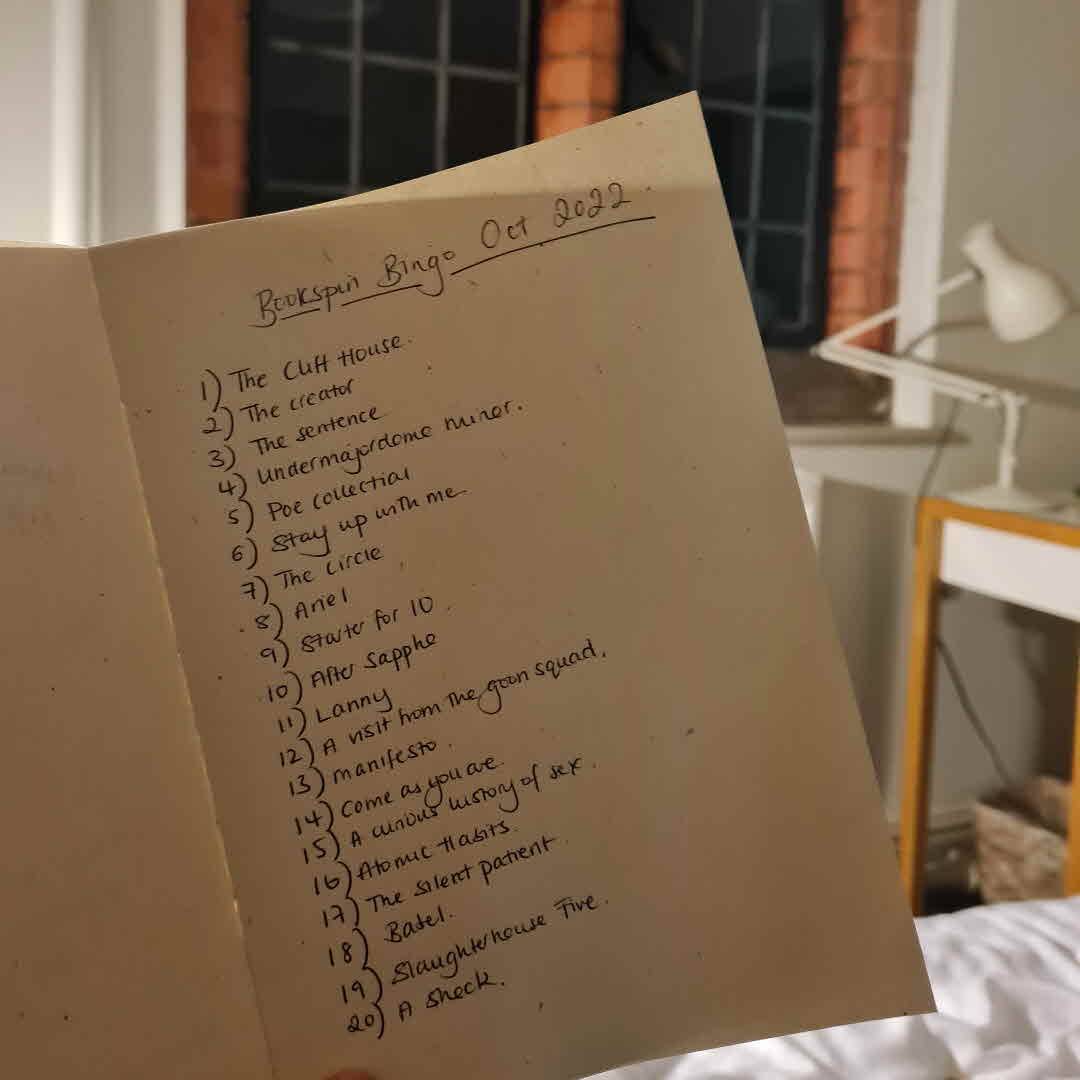 Bookspin Bingo Oct 2022.
1) The Cliff House.
2) The creator
3) The sentence
4) Undermajordomo minor.
5) Poe collection
6) Stay up with me
7) The Circle
8) Ariel
9) Starter for 10
10) After Sappho
11) Lanny
12) A visit from the goon squad.
13) manifesto.
14) Come as you are.
15) A curious history of sex.
16) Atomic Habits.
17) The silent patient.
18) Babel.
19) Slaughterhouse Five.
20) A Shock.